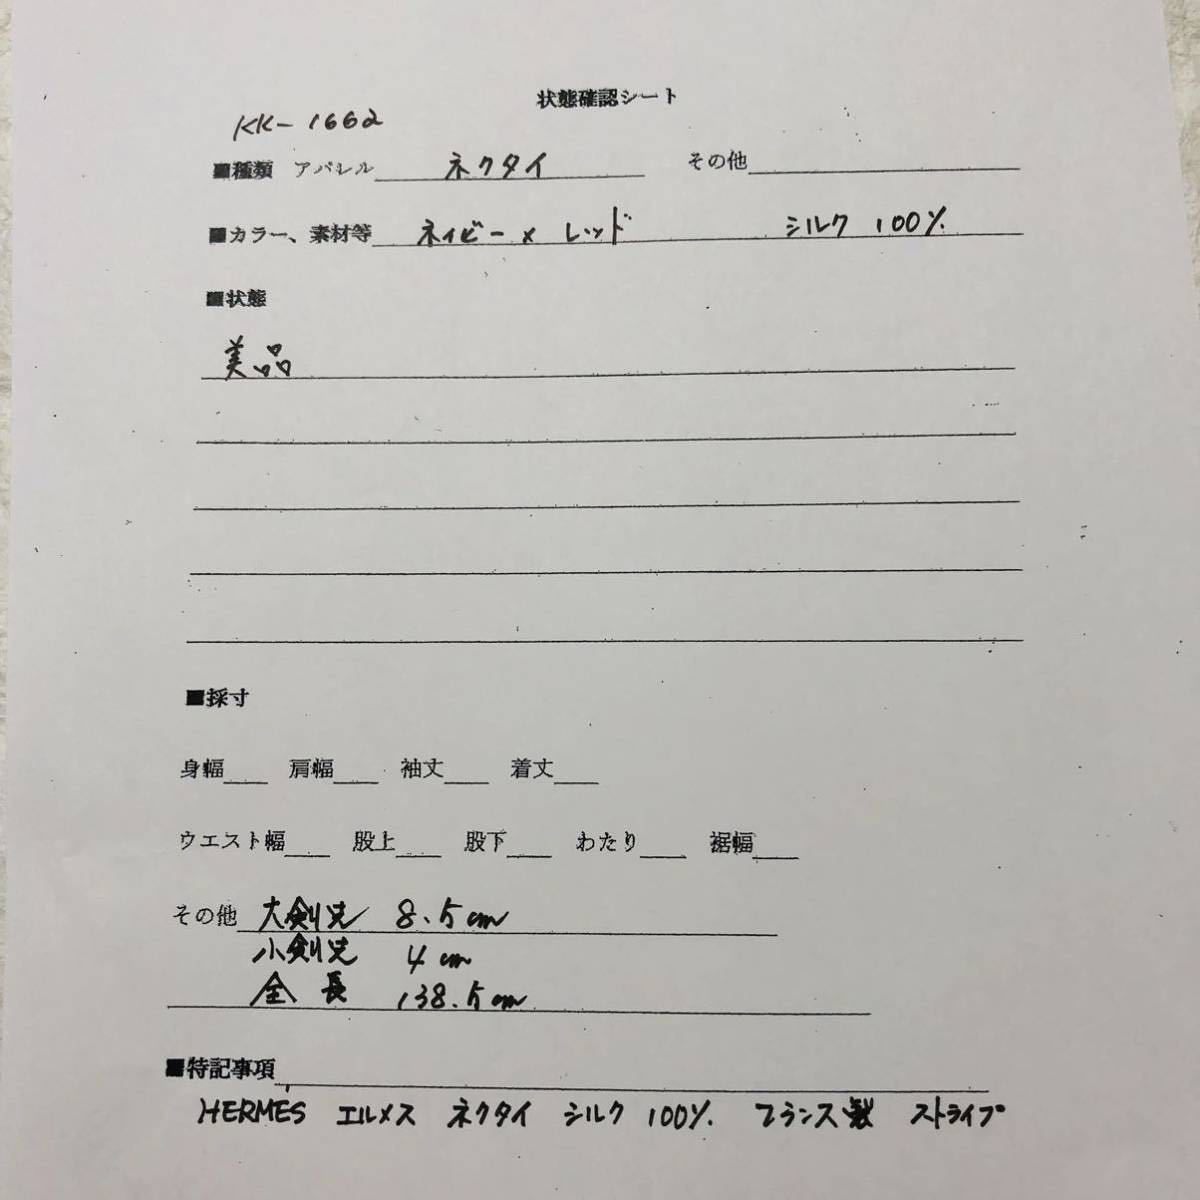 状態確認シート
KK-1662
■種類 アパレル ネクタイ その他
■カラー、素材等 ネイビー × レッド シルク 100%
■状態
美品
■採寸
身幅 肩幅 袖丈 着丈
ウエスト幅 股上 股下 わたり 裾幅
その他 大剣先 8.5cm
小剣先 4cm
全長 138.5cm
■特記事項
HERMES エルメス ネクタイ シルク 100% フランス製 ストライプ